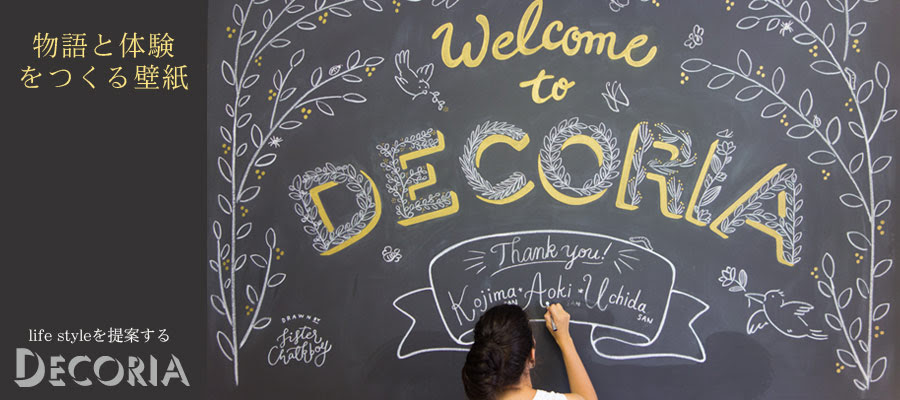 物語と体験
をつくる壁紙
life styleを提案する
DECORIA
Welcome
to
DECORIA
Thank you!
Kojima SAN • Aoki SAN • Uchida SAN
DRAWN BY
Sister
Chalkboy